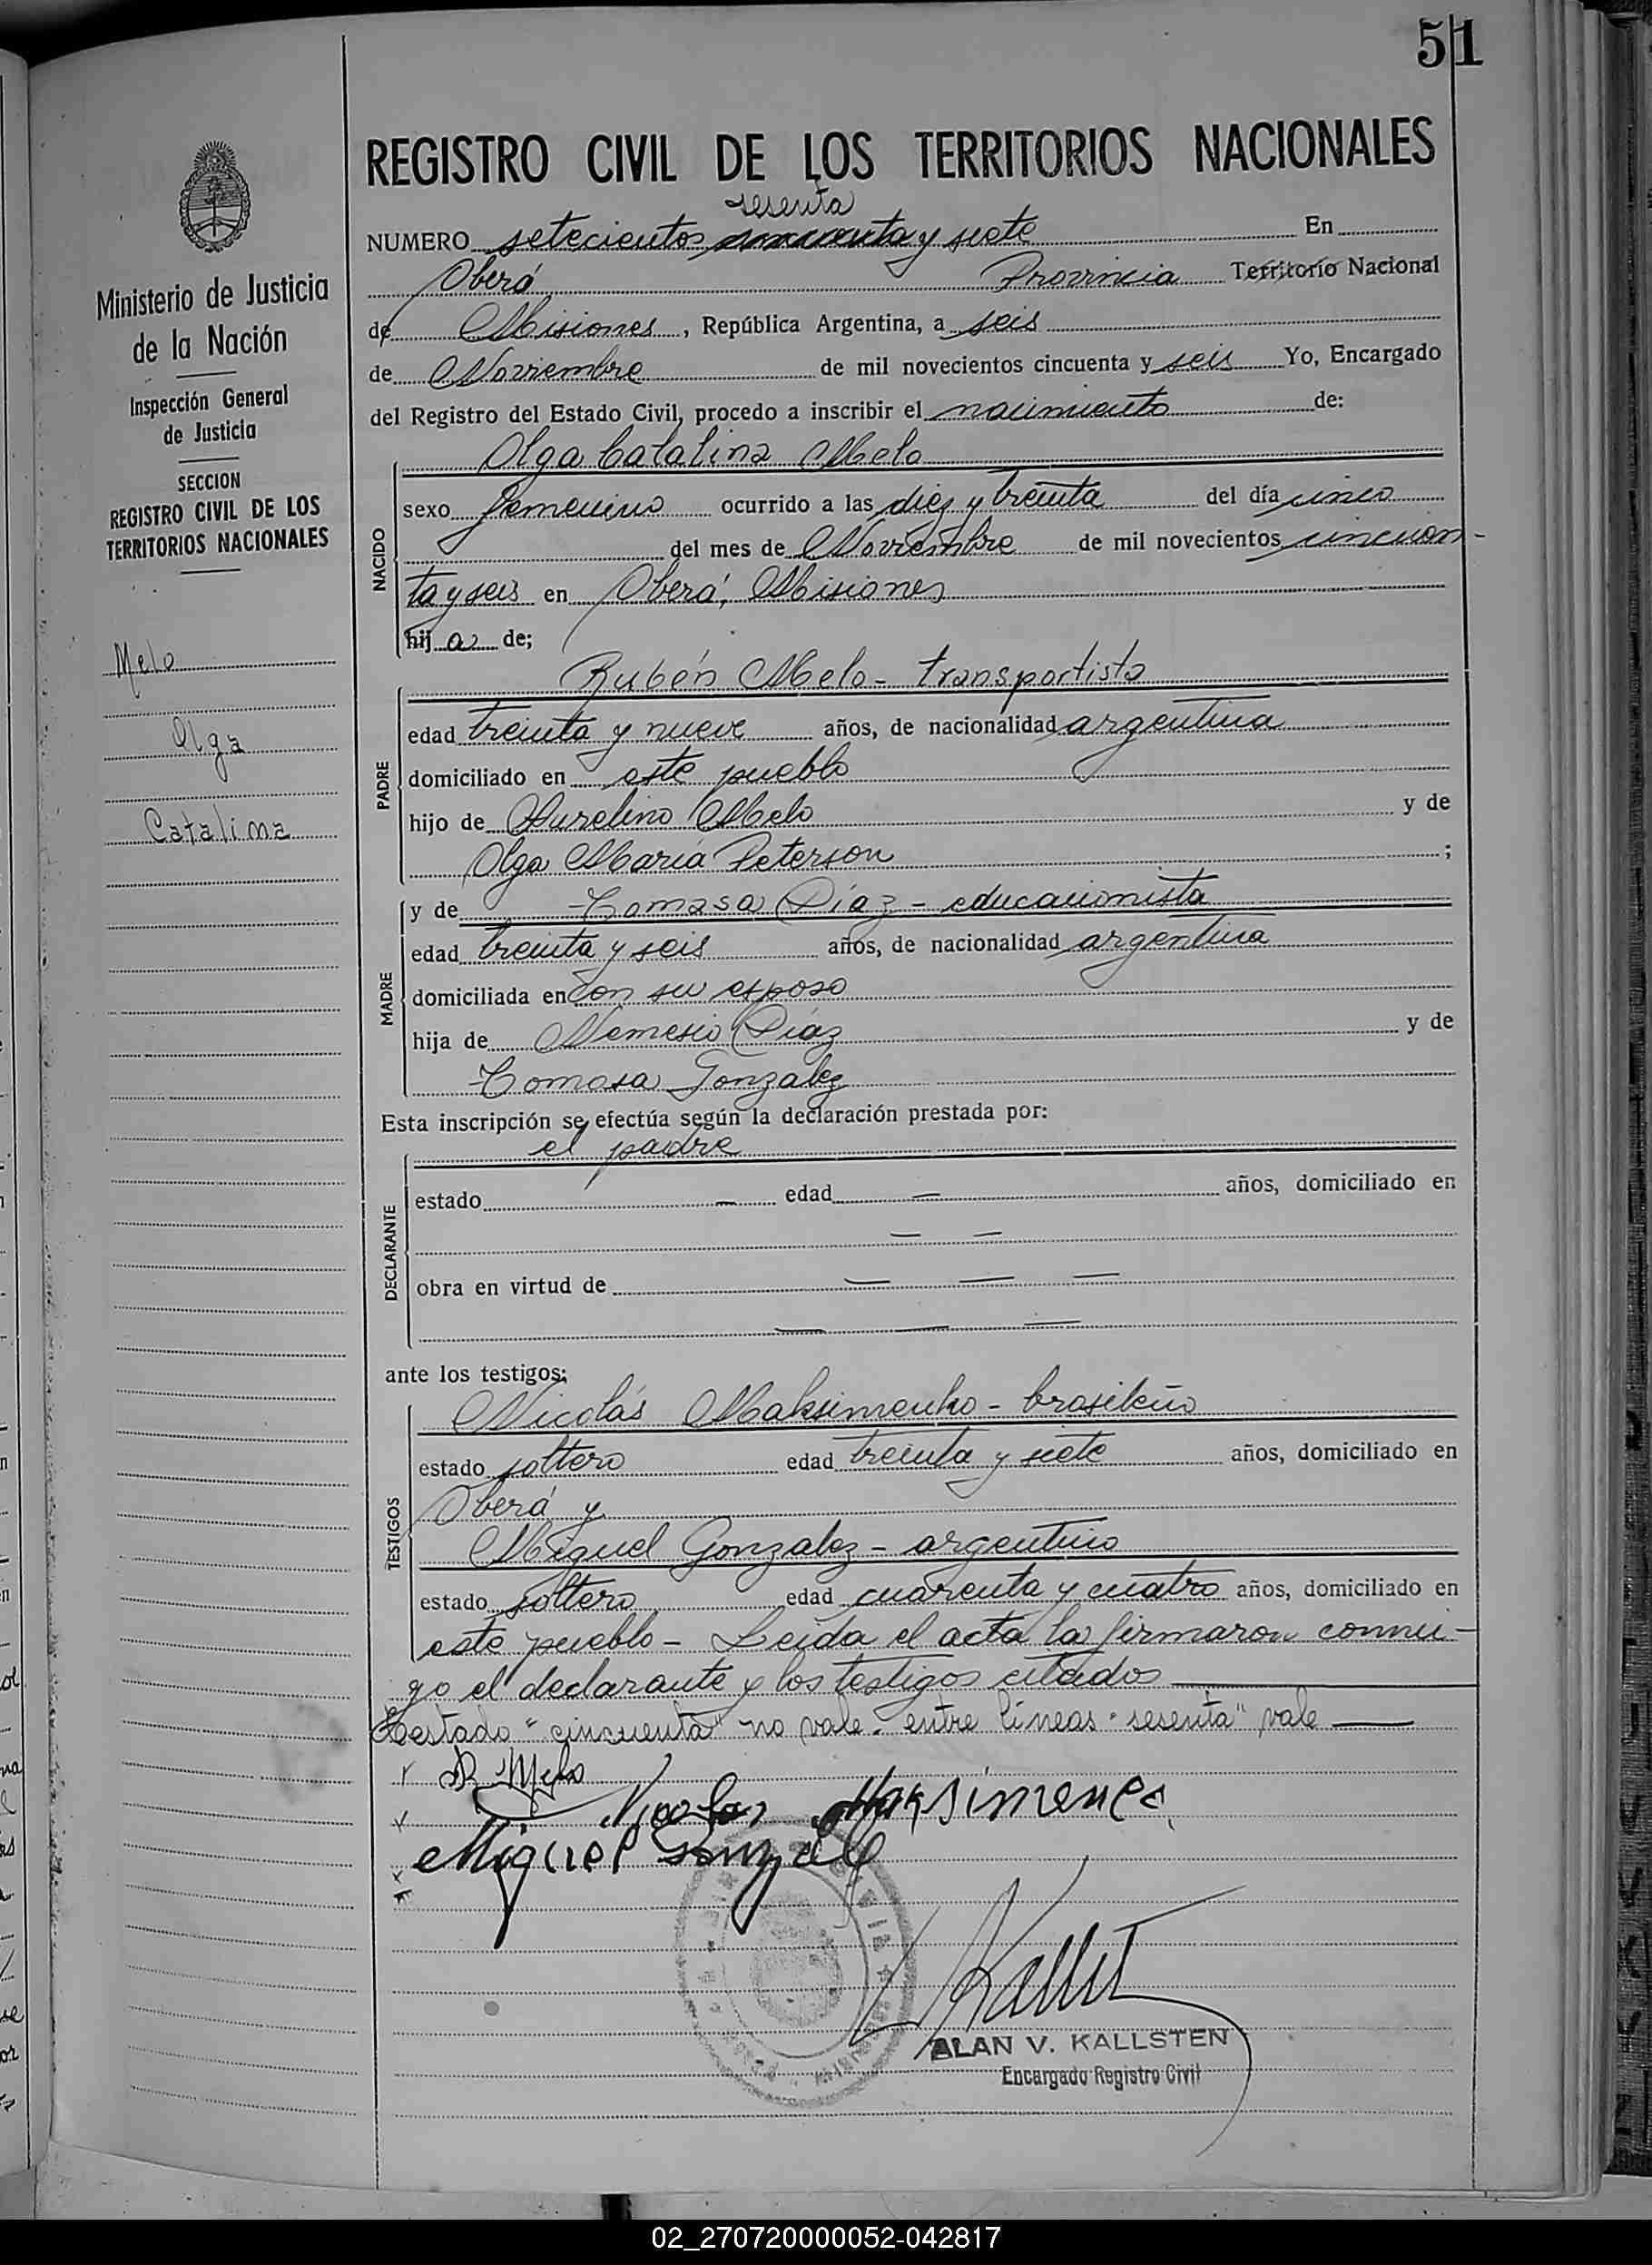 51
REGISTRO CIVIL DE LOS TERRITORIOS NACIONALES
sesenta
NUMERO setecientos cincuenta y siete En
Oberá Provincia Territorio Nacional
de Misiones, República Argentina, a seis
de Noviembre de mil novecientos cincuenta y seis Yo, Encargado
del Registro del Estado Civil, procedo a inscribir el nacimiento de:
Olga Catalina Melo
NACIDO
sexo femenino ocurrido a las diez y treinta del día cinco
del mes de Noviembre de mil novecientos cincuen-
ta y seis en Oberá, Misiones
hija de;
Rubén Melo - transportista
PADRE
edad treinta y nueve años, de nacionalidad argentina
domiciliado en este pueblo
hijo de Aurelino Melo y de
Olga María Peterson ;
y de Tomasa Díaz - educacionista
MADRE
edad treinta y seis años, de nacionalidad argentina
domiciliada en con su esposo
hija de Nemesio Díaz y de
Tomasa Gonzalez
Esta inscripción se efectúa según la declaración prestada por:
el padre
DECLARANTE
estado — edad — años, domiciliado en
— —
obra en virtud de — — —
— — —
ante los testigos:
Nicolás Maksimenko - brasileño
TESTIGOS
estado soltero edad treinta y siete años, domiciliado en
Oberá y
Miguel Gonzalez - argentino
estado soltero edad cuarenta y cuatro años, domiciliado en
este pueblo - Leída el acta la firmaron conmi-
go el declarante y los testigos citados
Testado "cincuenta" no vale. entre líneas "sesenta" vale —
R Melo
Nicolas
Miguel Gonzale
ALAN V. KALLSTEN
Encargado Registro Civil
Ministerio de Justicia
de la Nación
Inspección General
de Justicia
SECCION
REGISTRO CIVIL DE LOS
TERRITORIOS NACIONALES
Melo
Olga
Catalina
02_270720000052-042817